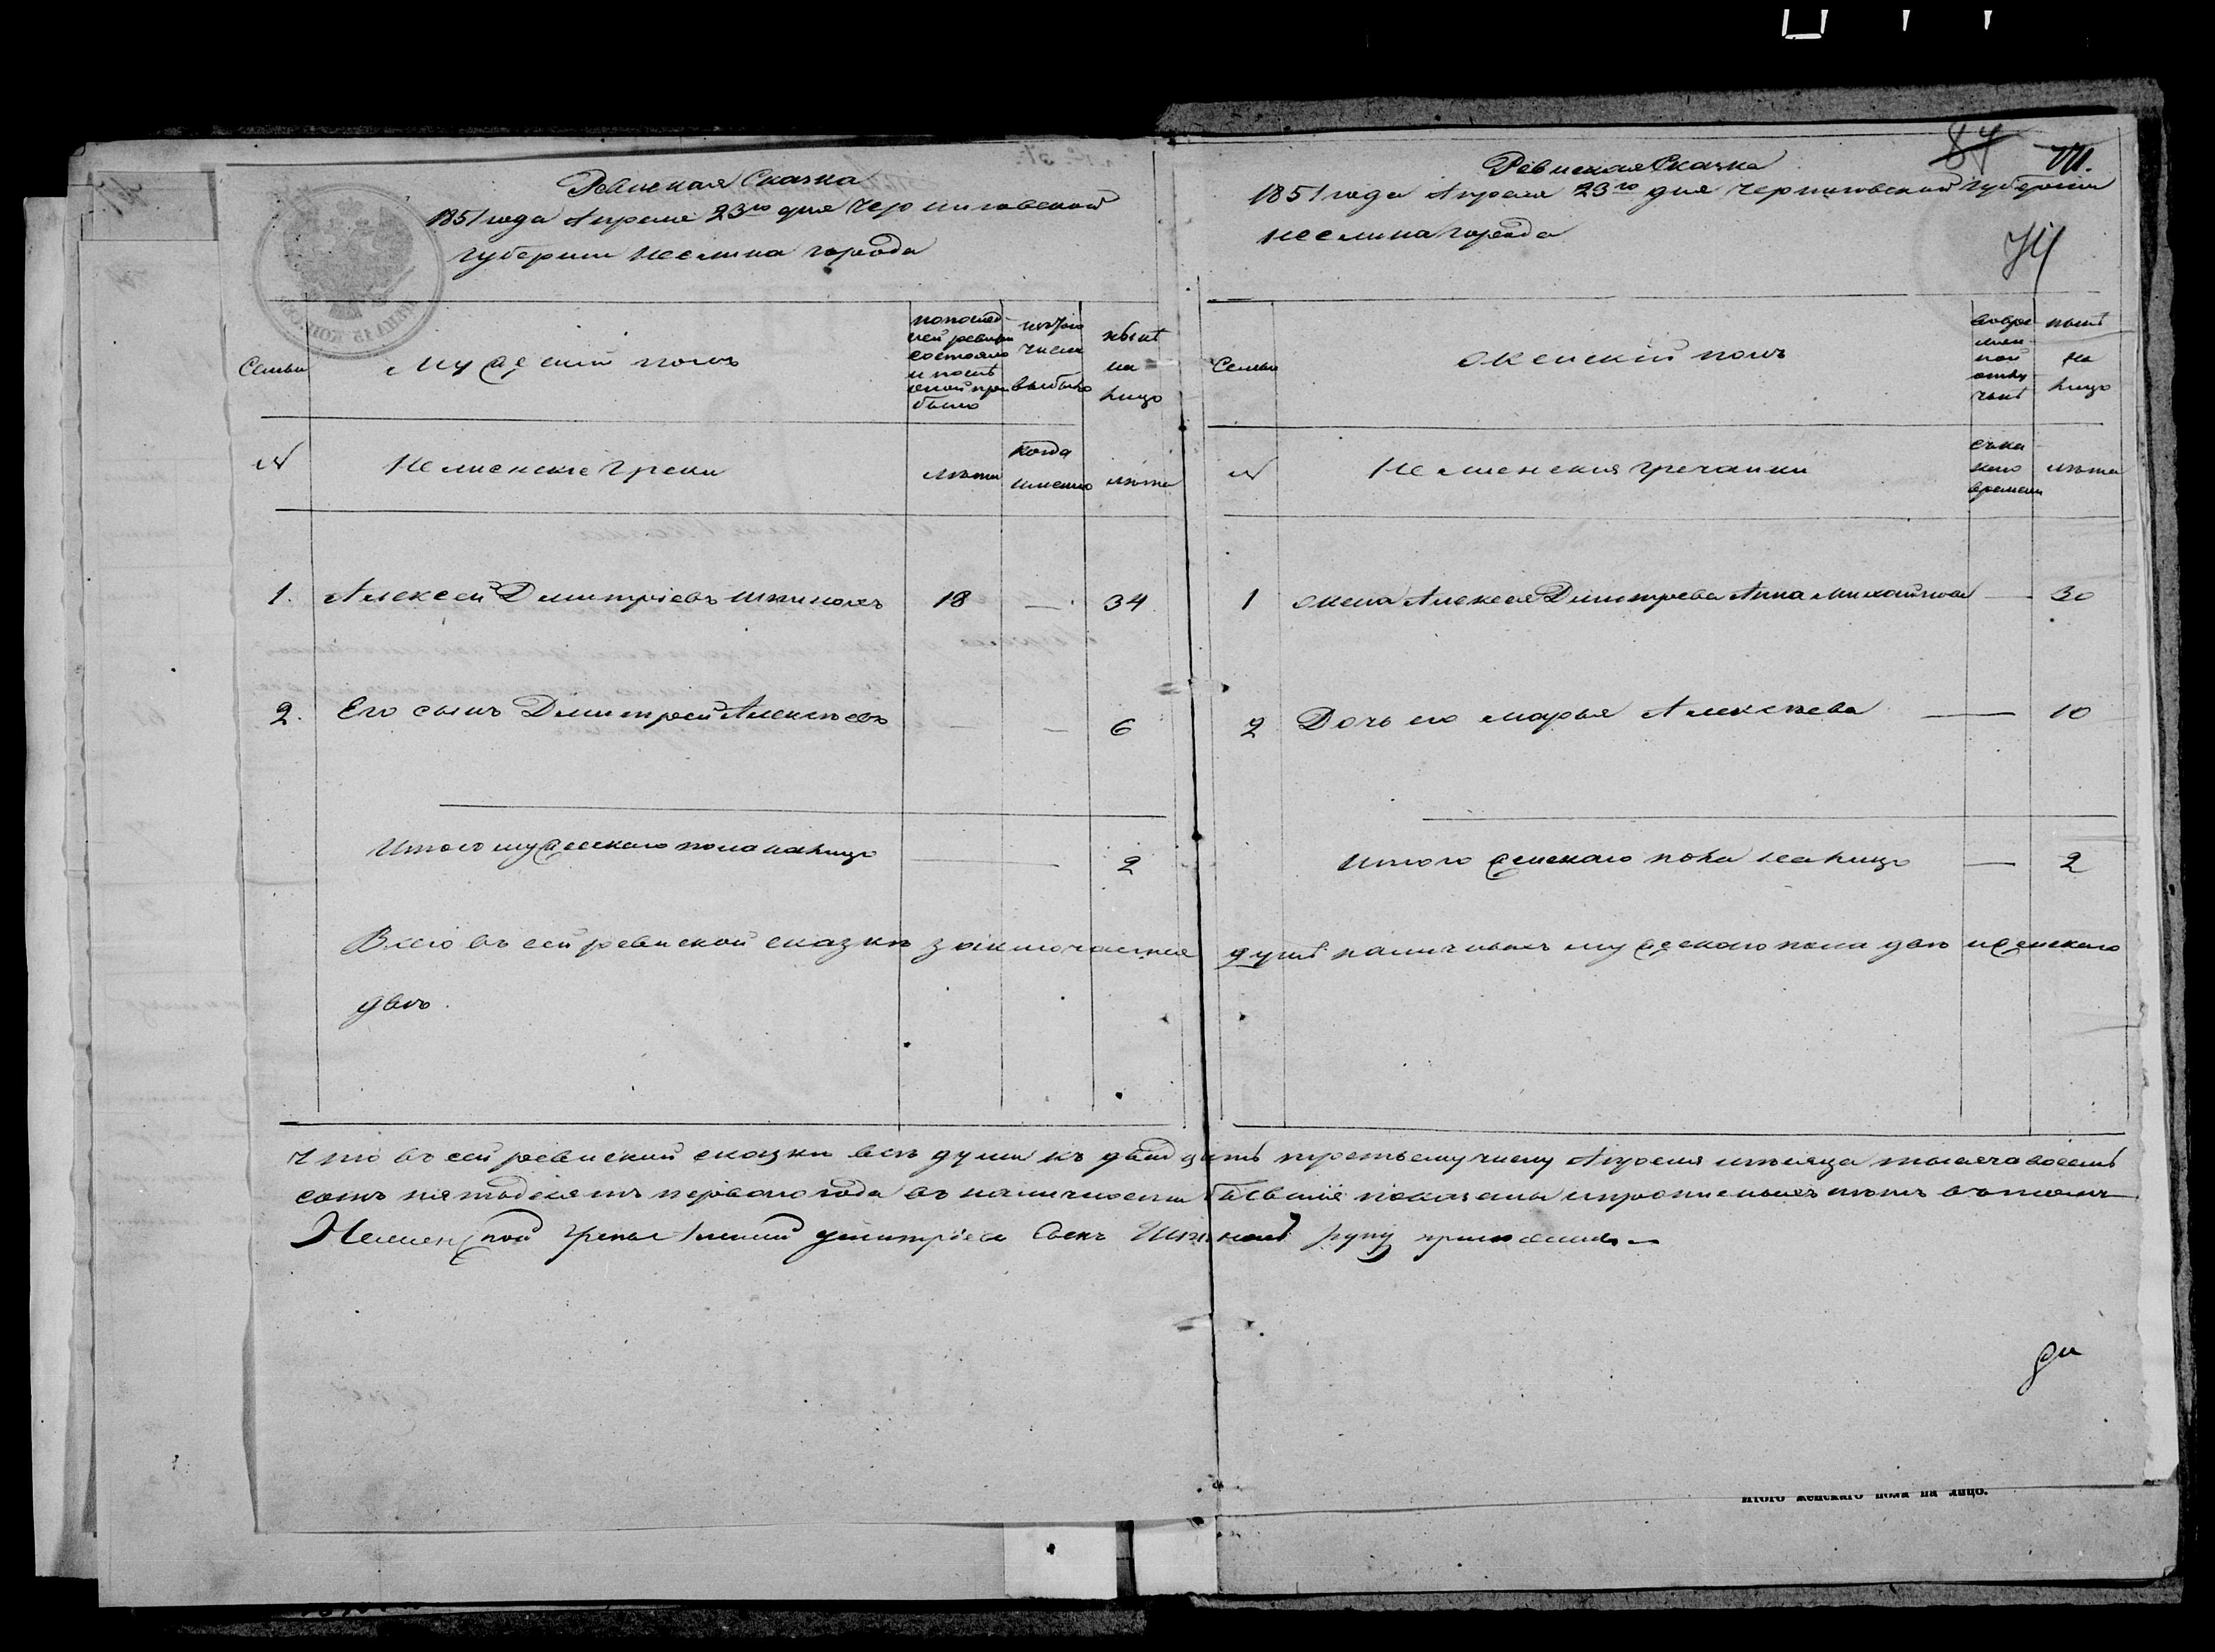 Ревиская Сказка
1851 года Апреля 23го дня Черниговской
губернии Нежина города
Семьи
Мужеский полъ
по послед-
ней ревизіи
состояло
и послѣ
оной при
было
изъ того
числа
выбыло
нынѣ
на
лицо
№
Нежинские Греки
лѣта
когда
именно
лѣта
1. Алексей Димитріевъ 18 — 34
2. Его сынъ Димитрей Алексѣевъ — — 6
Итого мужескаго пола на лицо — 2
Ревиская Сказка
1851 года Апреля 23го дня Черниговской губернии
Нежина города
84
74
Семьи
Женский полъ
во вре-
мен-
ной
отлу-
чкѣ
нынѣ
на
лицо
№
Нежинския гречанки
съ ка
кого
времени
лѣта
1 Жена Алексея Димитрева Анна Михайлова — 30
2 Дочь его Марья Алексѣева — 10
Итого женскаго пола на лицо — 2
Всего въ сей ревиской сказки заключается душъ наличныхъ мужескаго пола двѣ и женскаго
двѣ.
Что въ сей ревиской сказки всѣ души къ двадцать третьему числу Апреля мѣсяца тысяча восемъ
сотъ пятьдесятъ первого года въ наличности бывшія показаны и прописныхъ нѣтъ въ томъ
Неженской Грекъ димитріевъ Сынъ руку приложилъ
итого женскаго пола на лицо.